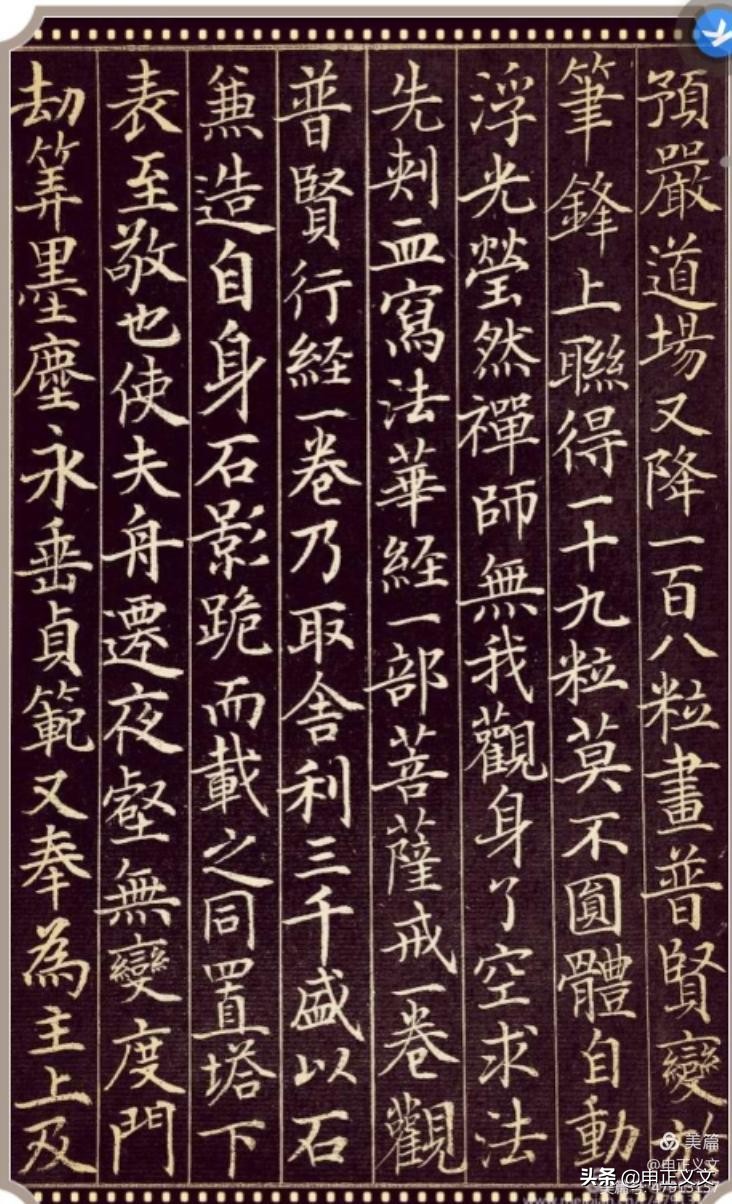 預嚴道場又降一百八粒畫普賢變
筆鋒上聯得一十九粒莫不圓體自動
浮光瑩然禪師無我觀身了空求法
先刺血寫法華経一部菩薩戒一卷觀
普賢行経一卷乃取舍利三千盛以石
兼造自身石影跪而載之同置塔下
表至敬也使夫舟遷夜壑無變度門
劫筭墨塵永垂貞範又奉為主上及
美篇
@申正义文
头条 @申正义文